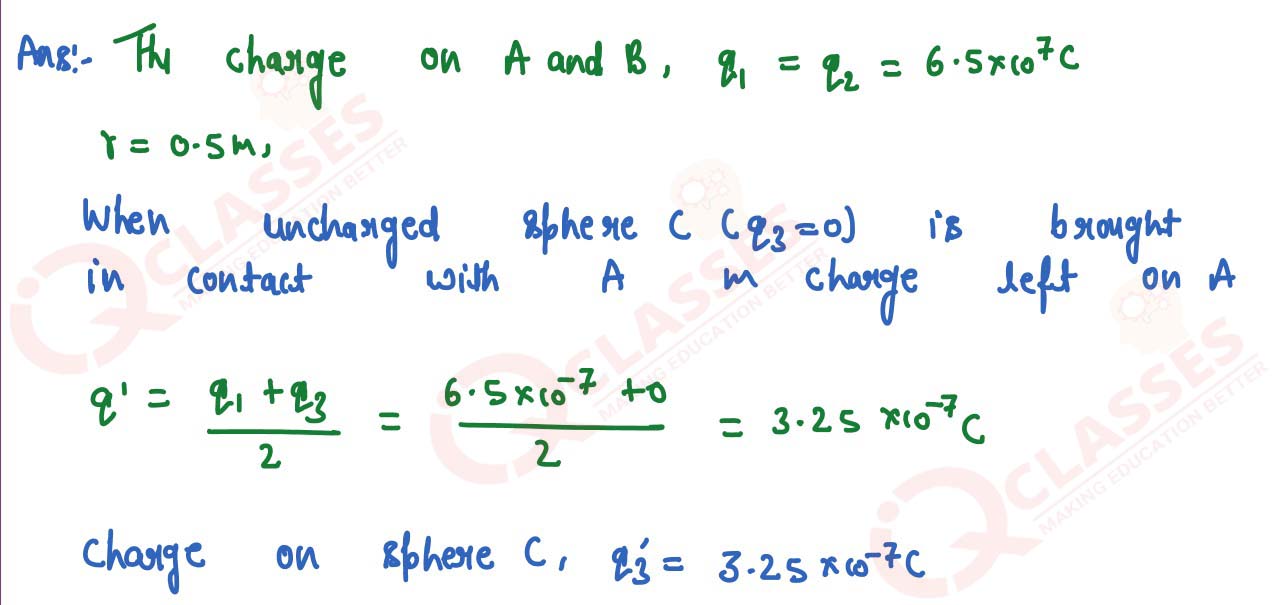 Ans:- The charge on A and B, q₁ = q₂ = 6.5×10⁷C
r = 0.5m,
When uncharged sphere C (q₃=0) is brought
in contact with A m charge left on A
q' = (q₁ + q₃)/2 = (6.5×10⁻⁷ + 0)/2 = 3.25 ×10⁻⁷C
Charge on sphere C, q₃' = 3.25 ×10⁻⁷C
CLASSES
MAKING EDUCATION BETTER
CLASSES
MAKING EDUCATION BETTER
CLASSES
MAKING EDUCATION BETTER